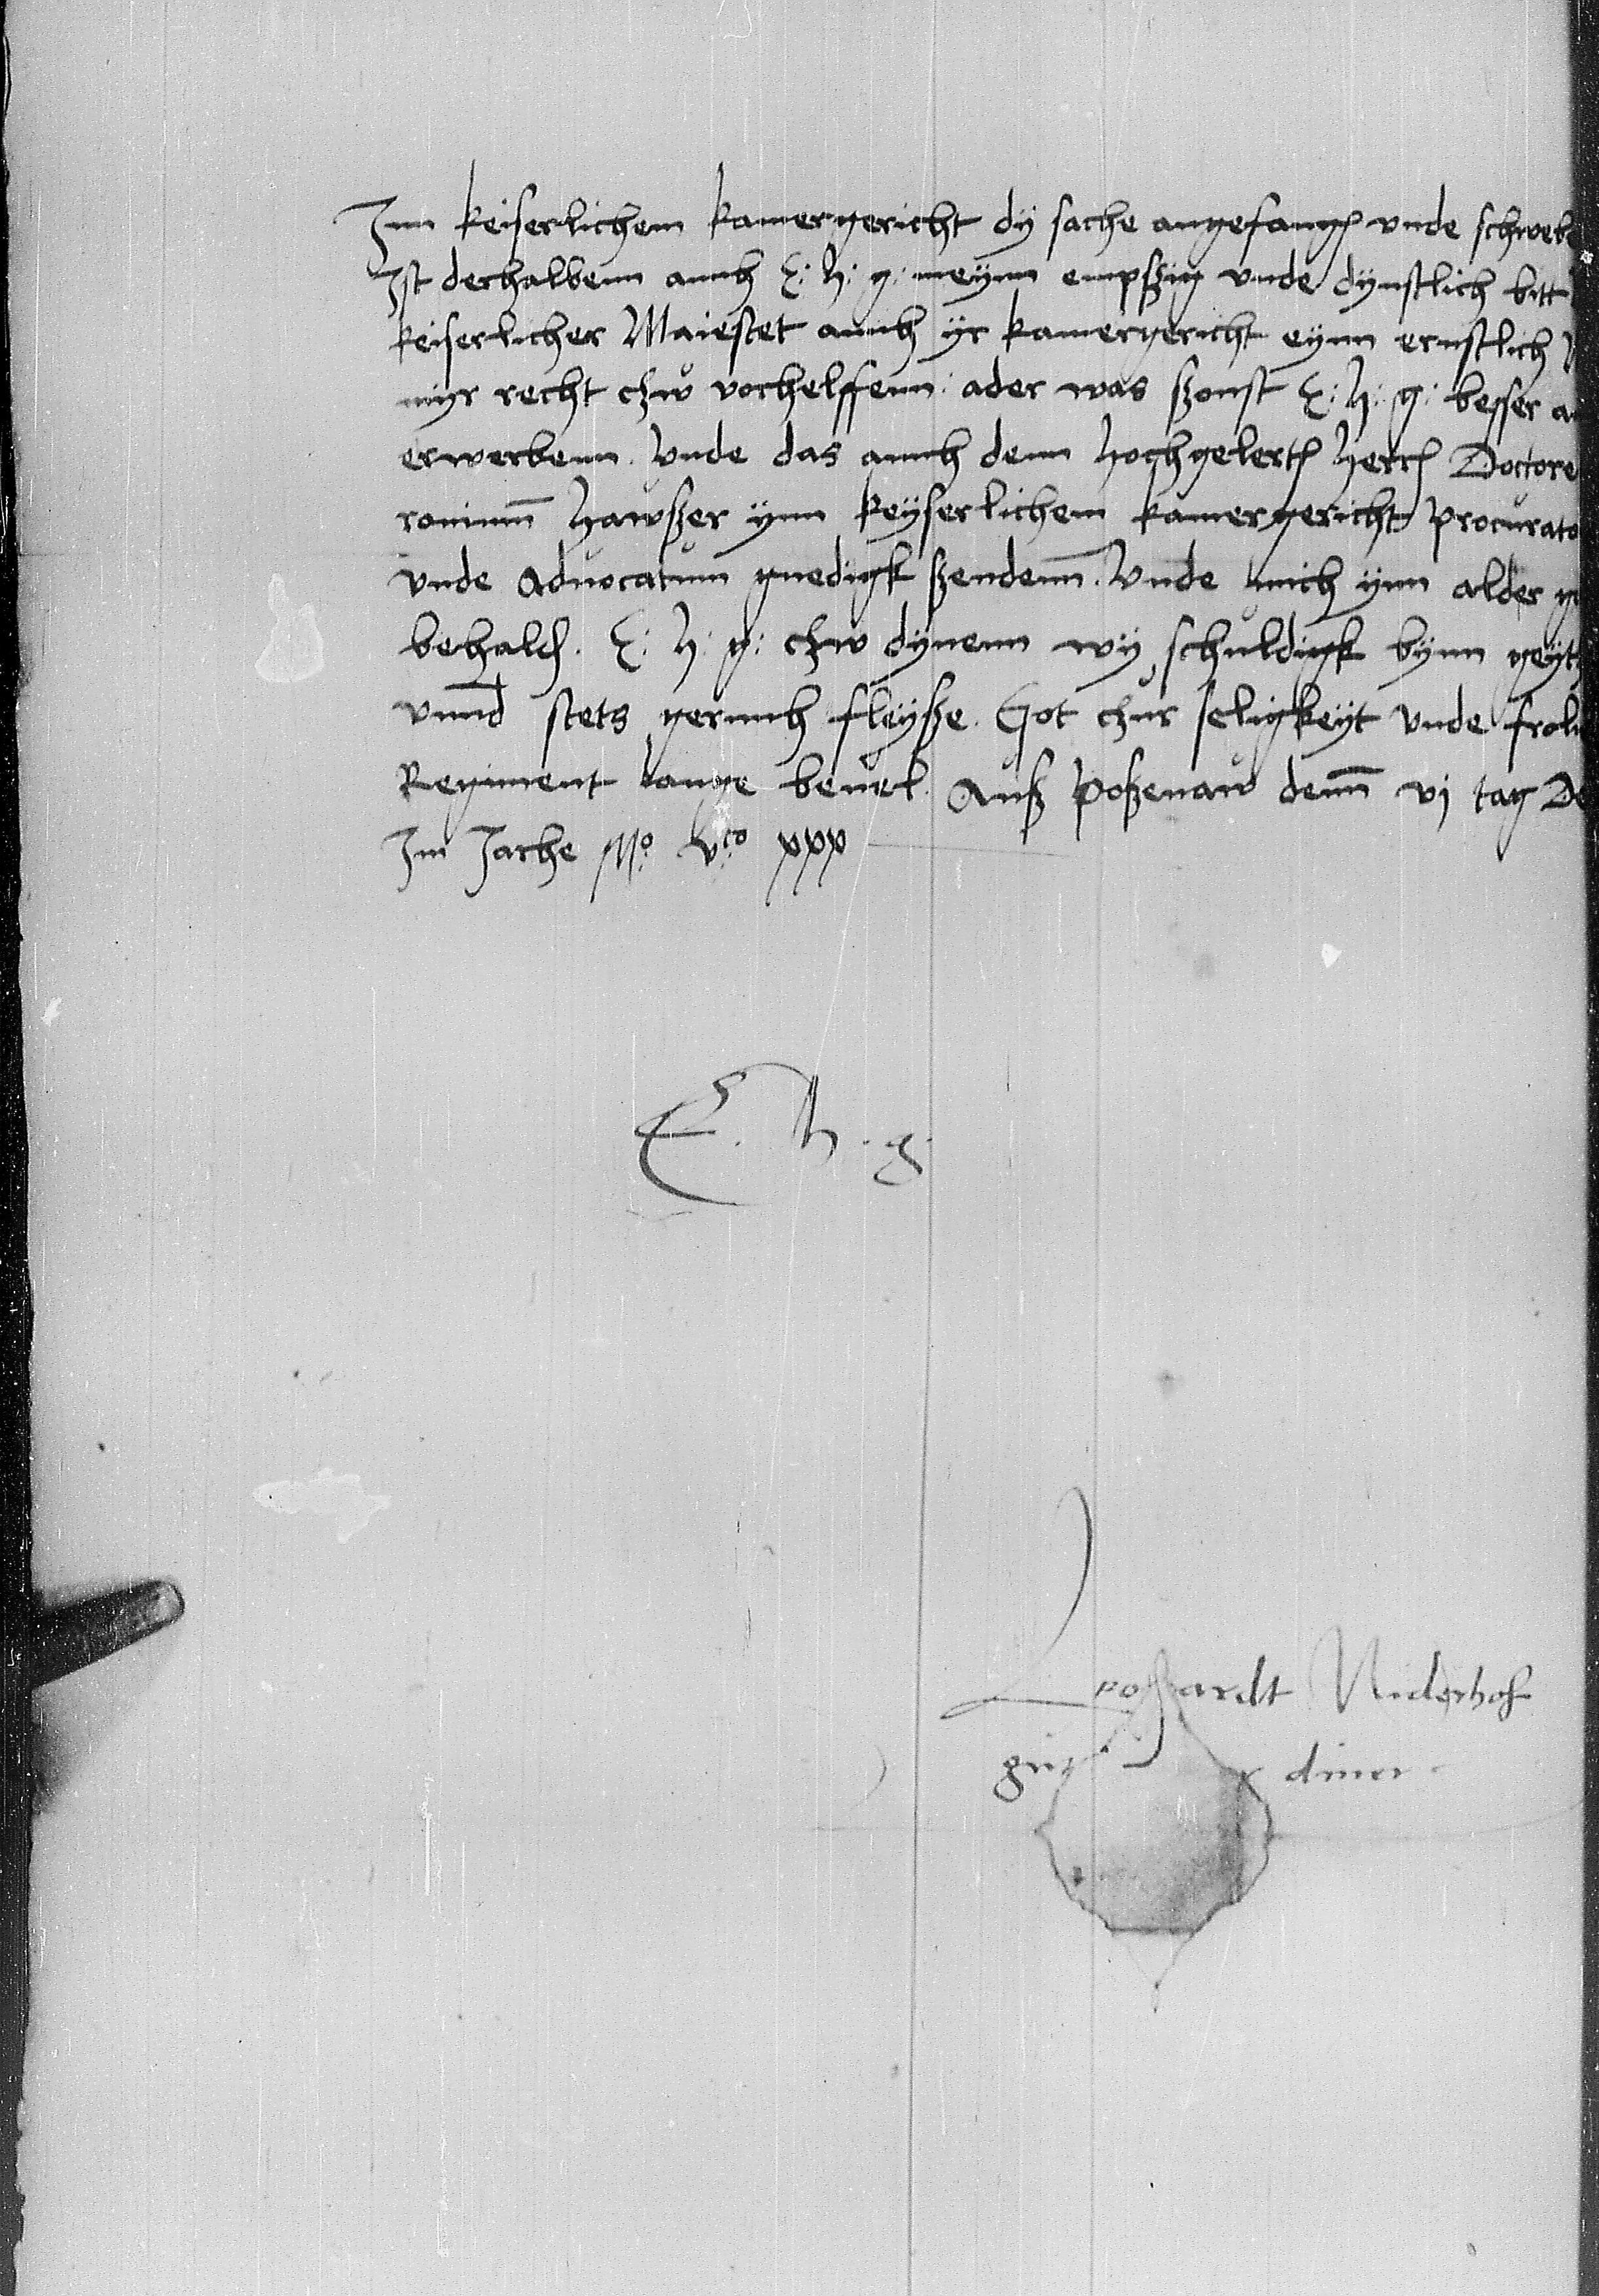 Inn keiserlichem kamergericht dy sache angefangen vnde schwebe
Ist derhalbenn annh E: h: g: meynn empßig vnde dynstlich bitt
keiserlicher Maiestet annh yr kamergericht eynn ernstlich
myr recht chw vorhelffenn: ader was ßonst E: h: g: besser a
erwerbenn. Vnde das annh denn hochgelerten Herren Doctore
ronimum Hawßer ynn keyserlichem kamergericht procurato
vnde Aduocatum gnedigk ßendenn. Vnde mich ynn alder g
behalden. E: h: g: chw dynenn wy schuldigk bynn
vnnd stets gernnh fleyße. Got chur seligkeyt vnde froli
Regiment lange beuel. Auß poßenaw denn vj tag De
Im Jarhe Mo: vco: xxx
E. h. g.
Leohardt Niderhof
diner